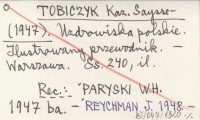 TOBICZYK Kaz. Saysse-
(1947). Uzdrowiska polskie.
Ilustrowany przewodnik. –
Warszawa. Ss. 240, il.
Rec.: PARYSKI W.H.
1947 ba. – REYCHMAN J. 1948. –